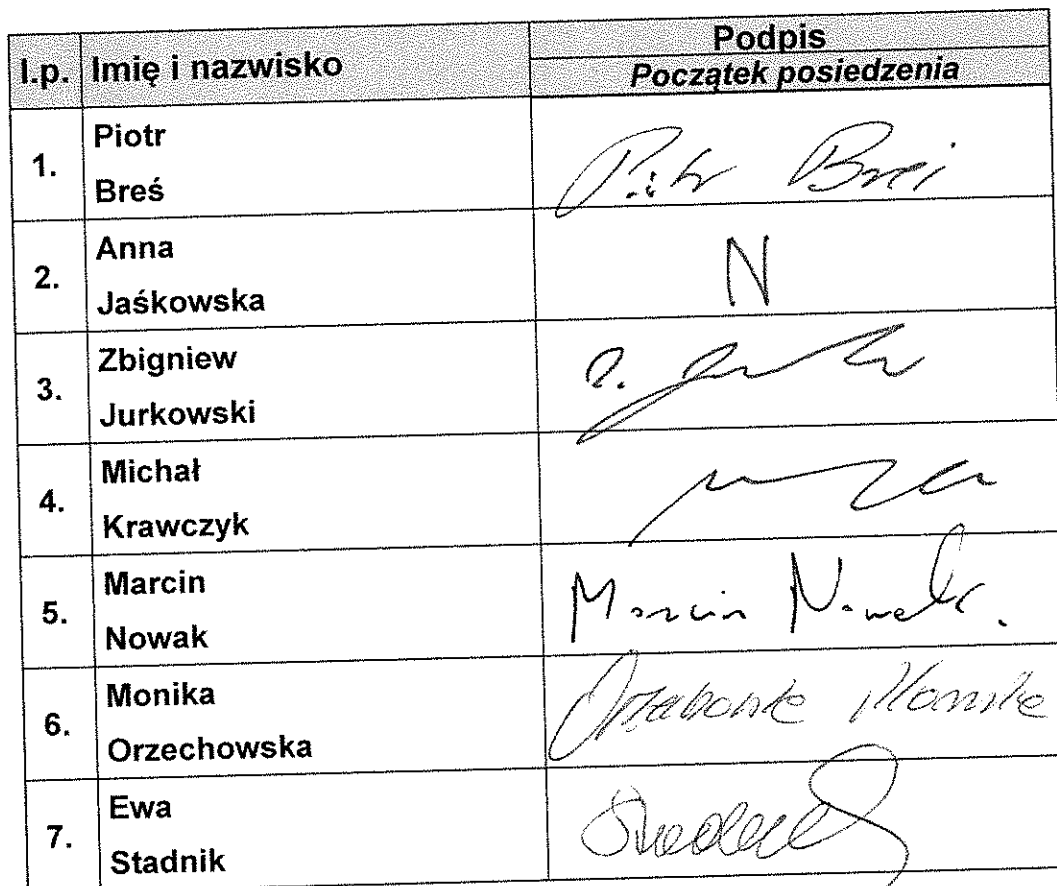 l.p. Imię i nazwisko Podpis
Początek posiedzenia
1. Piotr
Breś
Piotr Breś
2. Anna
Jaśkowska
N
3. Zbigniew
Jurkowski
4. Michał
Krawczyk
5. Marcin
Nowak
Marcin Nowak.
6. Monika
Orzechowska
Monika
7. Ewa
Stadnik